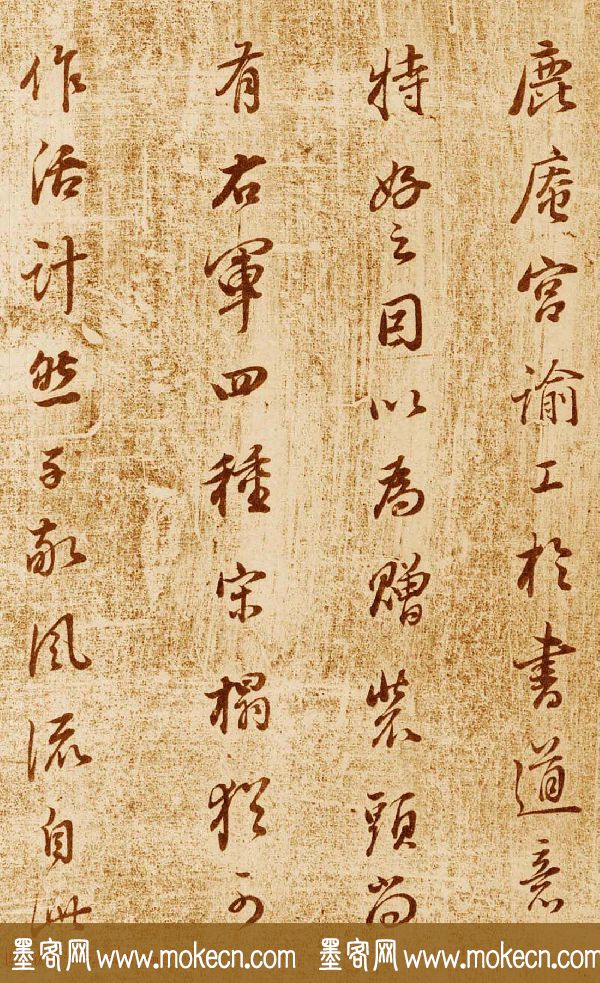 鹿庵宫谕工於書道意
特好之因以為贈装頭尚
有右軍四種宋榻猶可
作活計然子敬風流自此
墨客网 www.mokecn.com 墨客网 www.mokecn.com